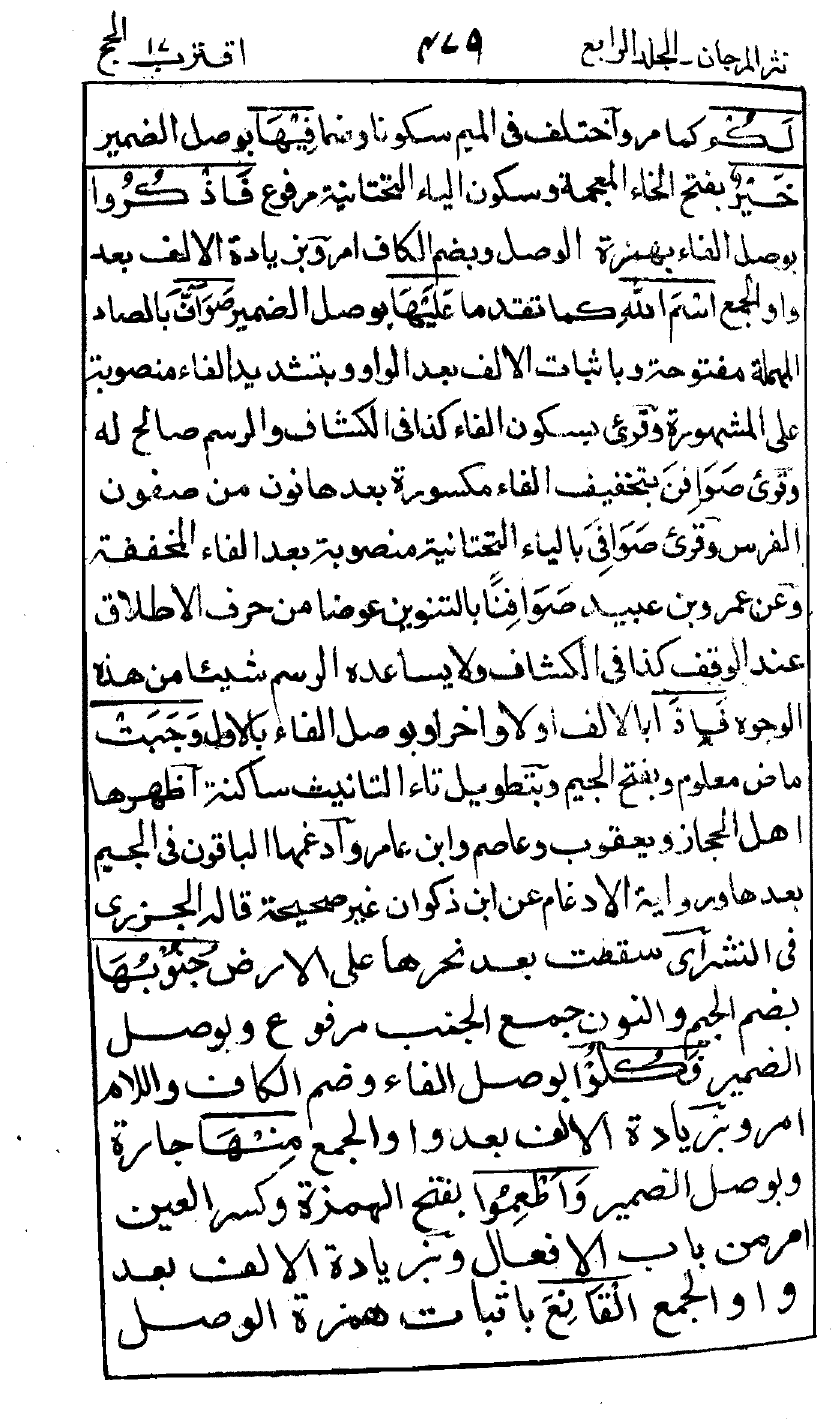 نثر المرجان ـ المجلد الرابع ٤٦٩ اقترب ١٧ الحج
لَكُمْ كما مر واختلف فى الميم سكونا وضما فِيْهَا بوصل الضمير
خَيْرٌ بفتح الخاء المعجمة وسكون الياء التحتانية مرفوع فَاذْكُرُوا
بوصل الفاء بهمزة الوصل وبضم الكاف امر وبزيادة الالف بعد
واو الجمع اسْمَ اللّٰهِ كما تقدما عَلَيْهَا بوصل الضمير صَوَافَّ بالصاد
المهملة مفتوحة وباثبات الالف بعد الواو وبتشديد الفاء منصوبة
على المشهورة وقرئ بسكون الفاء كذا فى الكشاف والرسم صالح له
وقرئ صَوَافِنَ بتخفيف الفاء مكسورة بعدها نون من صفون
الفرس وقرئ صَوَافِىَ بالياء التحتانية منصوبة بعد الفاء المخففة
وعن عمرو بن عبيد صَوَافِنًا بالتنوين عوضا من حرف الاطلاق
عند الوقف كذا فى الكشاف ولا يساعده الرسم شيئا من هذه
الوجوه فَاِذَا بالالف اولا واخرا وبوصل الفاء بالاول وَجَبَتْ
ماض معلوم وبفتح الجيم وبتطويل تاء التانيث ساكنة اظهرها
اهل الحجاز ويعقوب وعاصم وابن عامر وادغمها الباقون فى الجيم
بعدها ورواية الادغام عن ابن ذكوان غير صحيحة قاله الجزرى
فى النشر اى سقطت بعد نحرها على الارض جُنُوْبُهَا
بضم الجيم والنون جمع الجنب مرفوع وبوصل
الضمير فَكُلُوْا بوصل الفاء وضم الكاف واللام
امر وبزيادة الالف بعد واو الجمع مِنْهَا جارة
وبوصل الضمير وَاَطْعِمُوا بفتح الهمزة وكسر العين
امر من باب الافعال وبزيادة الالف بعد
واو الجمع الْقَانِعَ باثبات همزة الوصل